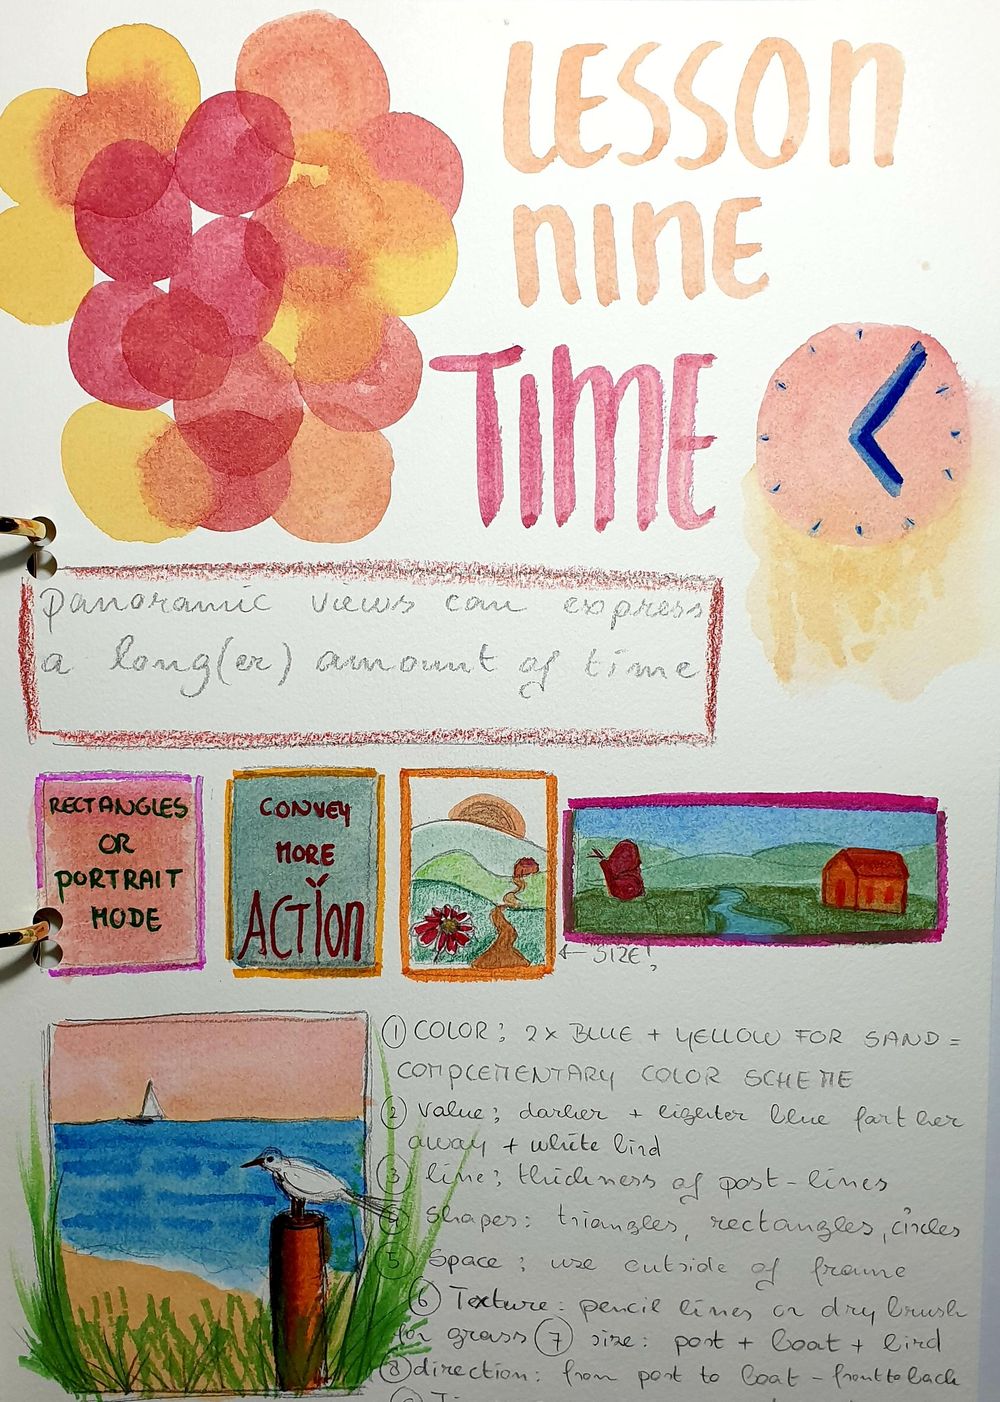 LESSON
NINE
TIME
panoramic views can express
a long(er) amount of time
RECTANGLES
OR
PORTRAIT
MODE
CONVEY
MORE
ACTION
← SIZE!
① COLOR: 2x BLUE + YELLOW FOR SAND =
COMPLEMENTARY COLOR SCHEME
② Value: darker + lighter blue farther
away + white bird
③ line: thickness of post-lines
④ Shapes: triangles, rectangles, circles
⑤ Space: use outside of frame
⑥ Texture: pencil lines or dry brush
for grass ⑦ size: post + boat + bird
⑧ direction: from post to boat - front to back